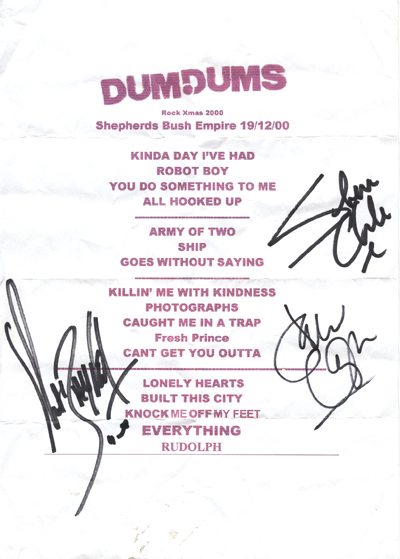 DUMDUMS
Rock Xmas 2000
Shepherds Bush Empire 19/12/00
KINDA DAY I'VE HAD
ROBOT BOY
YOU DO SOMETHING TO ME
ALL HOOKED UP
ARMY OF TWO
SHIP
GOES WITHOUT SAYING
KILLIN' ME WITH KINDNESS
PHOTOGRAPHS
CAUGHT ME IN A TRAP
Fresh Prince
CANT GET YOU OUTTA
LONELY HEARTS
BUILT THIS CITY
KNOCK ME OFF MY FEET
EVERYTHING
RUDOLPH